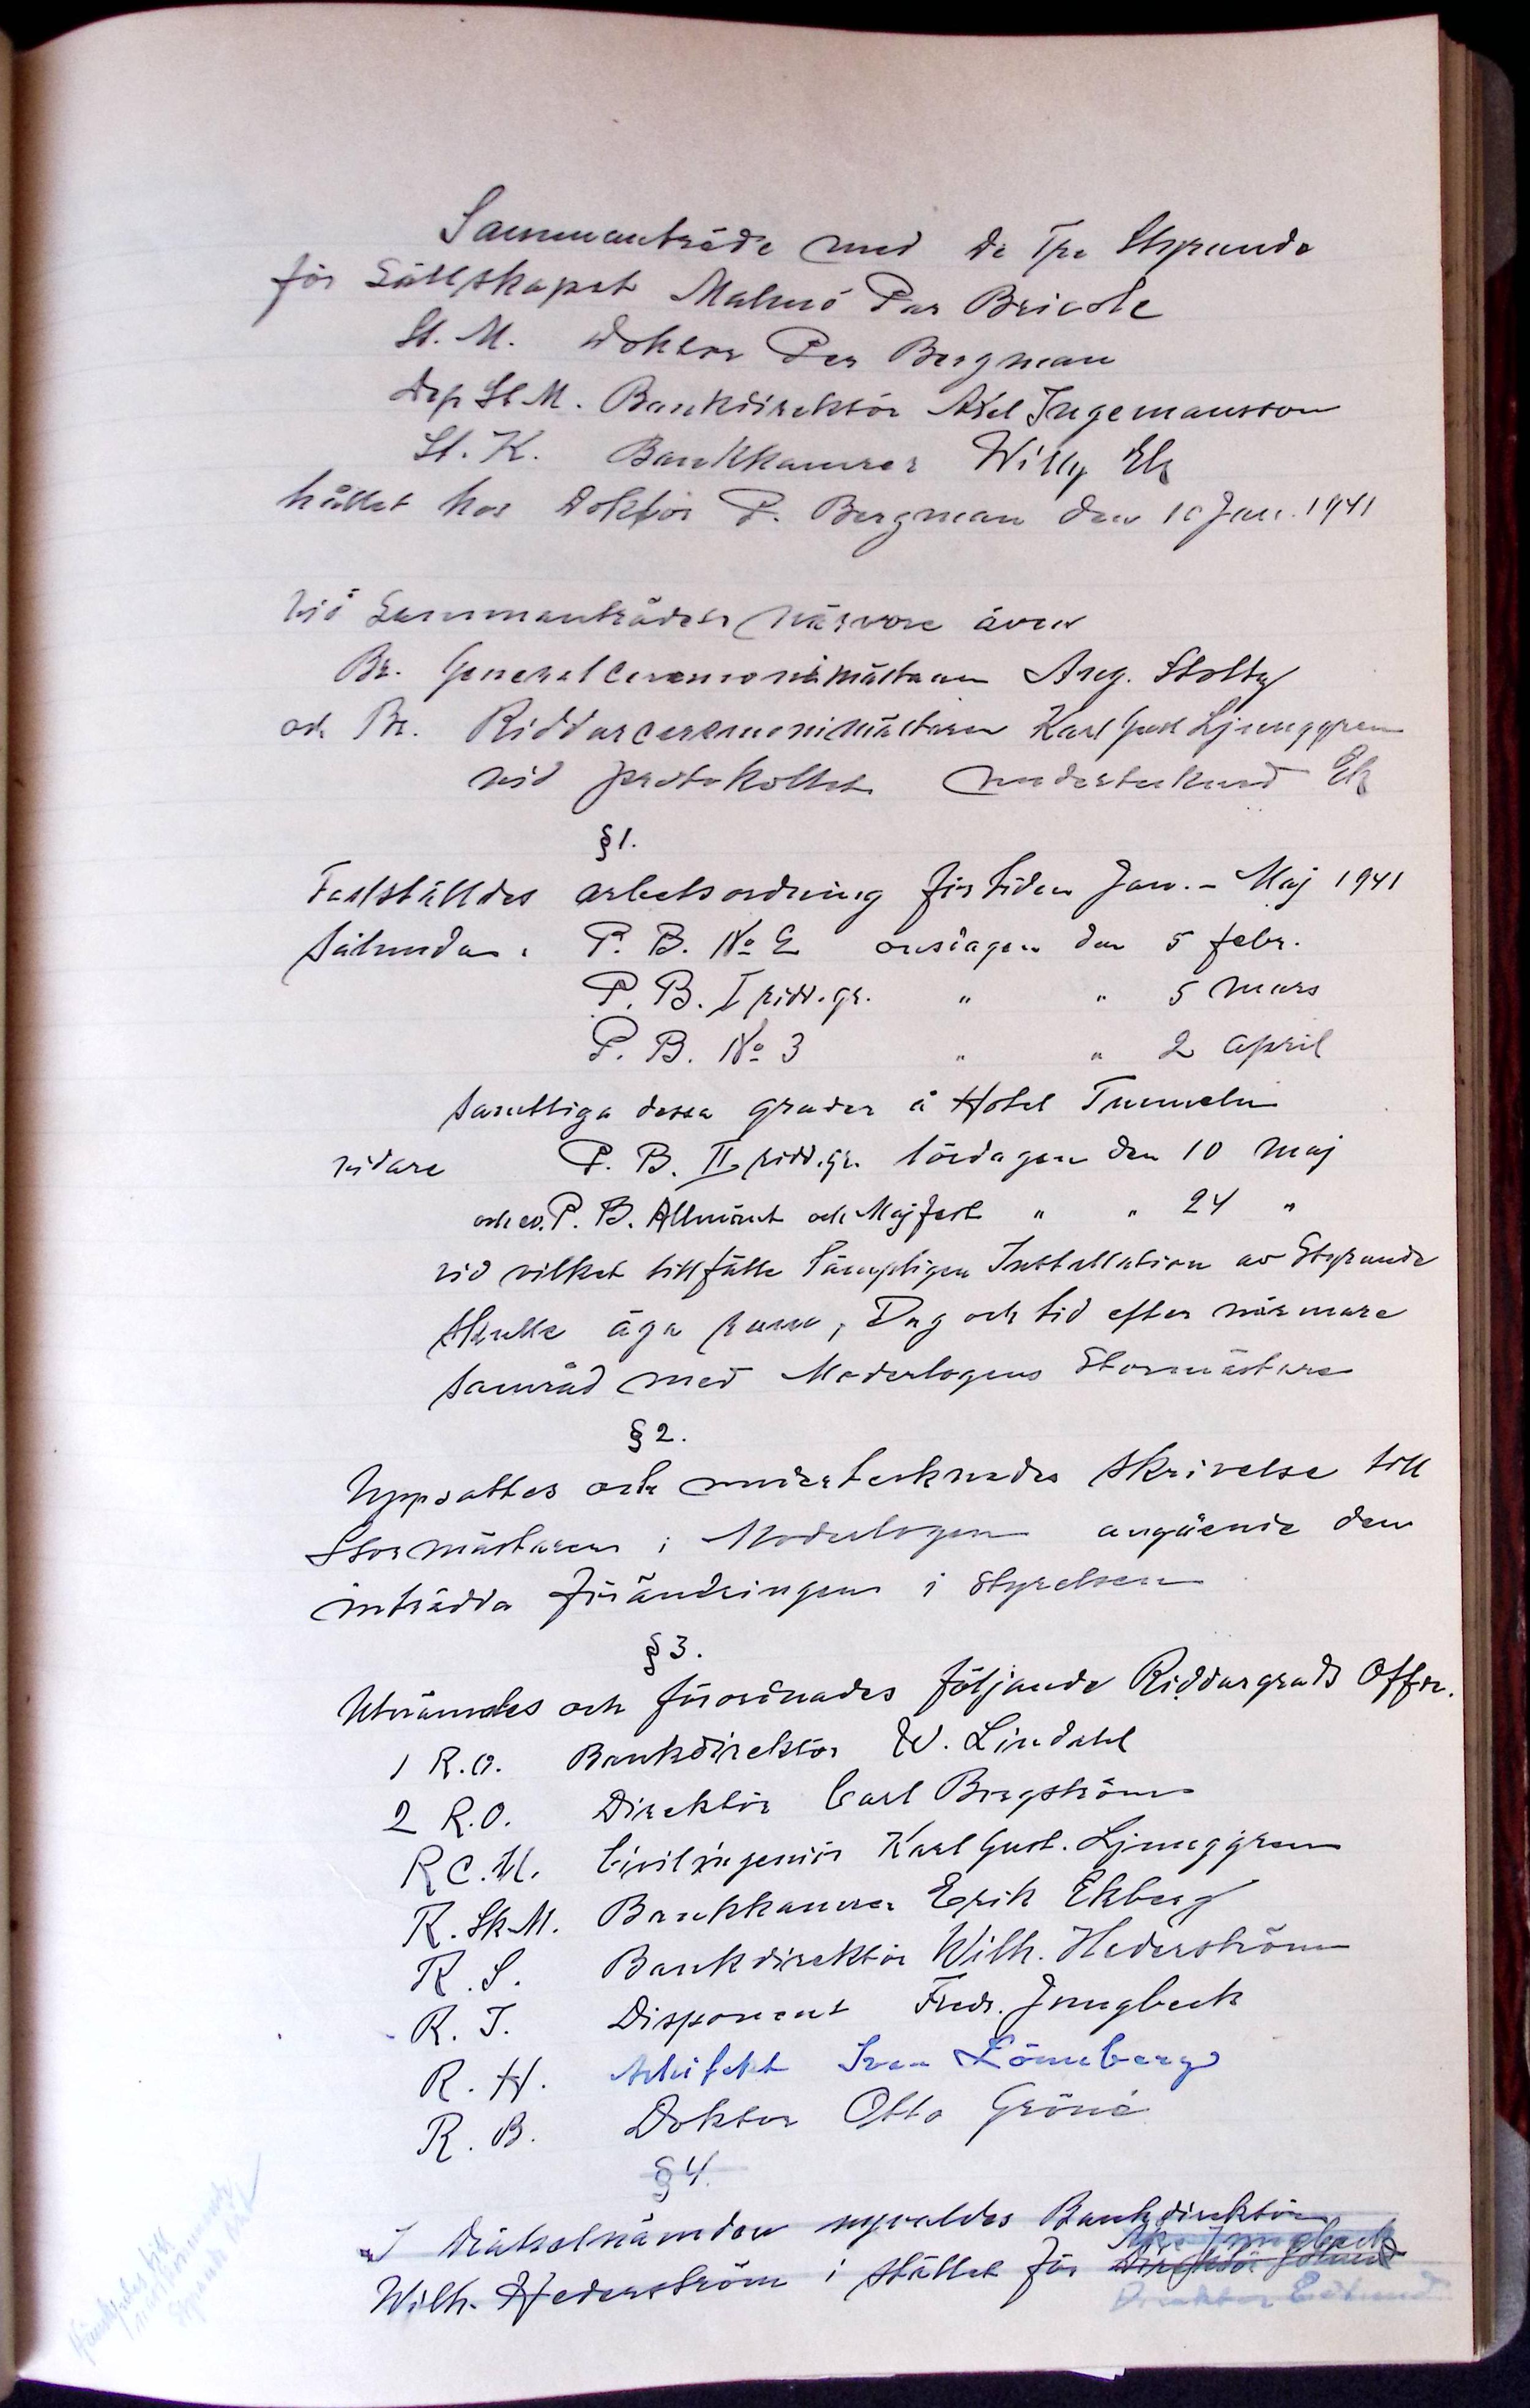 Sammanträde med de Tre Styrande
för Sällskapet Malmö Par Bricole
St. M. Doktor Per Bergman
Dep St M. Bankdirektör Axel Ingemansson
St. K. Bankkamrer Willy Ek
hållet hos Doktor P. Bergman den 10 Jan. 1941
Vid Sammanträdet närvore även
Br. Generalceremonimästaren Aug. Stoltz
och Br. Riddarceremonimästaren Karl Gust Ljunggren
vid protokollet undertecknad Ek
§ 1.
Fastställdes arbetsordning för tiden Jan. - Maj 1941
sålunda: P. B. No 2 onsdagen den 5 febr.
P. B. I ridd. gr. " " 5 mars
P. B. No 3 " " 2 april
samtliga dessa grader å Hotel Tunneln
vidare P. B. II ridd. gr. lördagen den 10 maj
och ev. P. B. Allmänt och Majfest " " 24 "
vid vilket tillfälle lämpligen Installation av Styrande
skulle äga rum, Dag och tid efter närmare
samråd med Moderlogens Stormästare
§ 2.
Uppsattes och undertecknades skrivelse till
Stormästaren i Moderlogen angående den
inträdda förändringen i Styrelsen
§ 3.
Utnämndes och förordnades följande Riddargrads Offic.
1 R.O. Bankdirektör W. Lindahl
2 R.O. Direktör Carl Bergström
R C. M. Civilingeniör Karl Gust. Ljunggren
R. Sk. M. Bankkamrer Erik Ekberg
R. S. Bankdirektör Wilh. Hederström
R. T. Disponent Fredr. Jungbeck
R. H. Arkitekt Ivan Lönneberg
R. B. Doktor Otto Gröné
§ 4.
I Drätselnämnden nyvaldes Bankdirektör
Wilh. Hederström i stället för Direktör